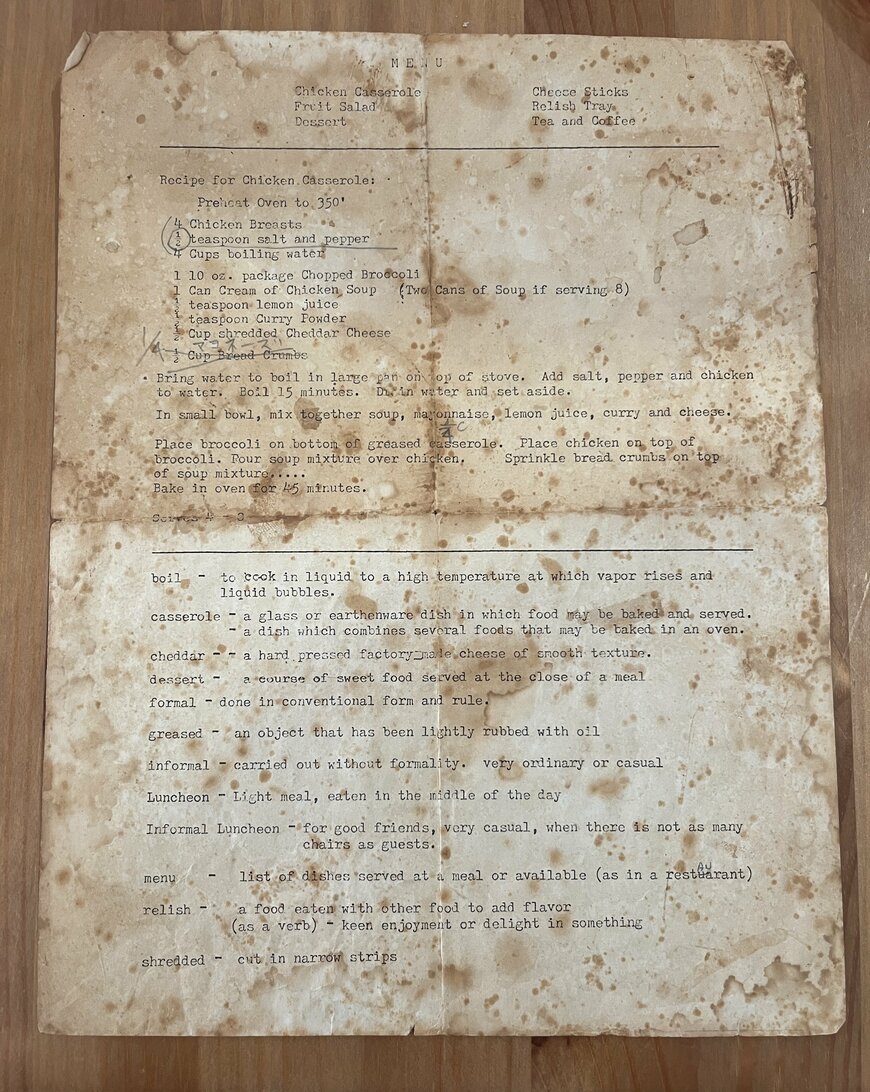 MENU
Chicken Casserole Cheese Sticks
Fruit Salad Relish Tray
Dessert Tea and Coffee
Recipe for Chicken Casserole:
Preheat Oven to 350'
4 Chicken Breasts
1/2 teaspoon salt and pepper
4 Cups boiling water
1 10 oz. package Chopped Broccoli
1 Can Cream of Chicken Soup (Two Cans of Soup if serving 8)
1/2 teaspoon lemon juice
1/2 teaspoon Curry Powder
1/2 Cup shredded Cheddar Cheese
1/4 マヨネーズ
1/2 Cup Bread Crumbs
Bring water to boil in large pan on top of stove. Add salt, pepper and chicken
to water. Boil 15 minutes. Drain water and set aside.
In small bowl, mix together soup, mayonnaise, lemon juice, curry and cheese.
1/4 C
Place broccoli on bottom of greased casserole. Place chicken on top of
broccoli. Pour soup mixture over chicken. Sprinkle bread crumbs on top
of soup mixture.....
Bake in oven for 45 minutes.
Serves 4 -
boil - to cook in liquid to a high temperature at which vapor rises and
liquid bubbles.
casserole - a glass or earthenware dish in which food may be baked and served.
- a dish which combines several foods that may be baked in an oven.
cheddar - - a hard pressed factory_made cheese of smooth texture.
dessert - a course of sweet food served at the close of a meal
formal - done in conventional form and rule.
greased - an object that has been lightly rubbed with oil
informal - carried out without formality. very ordinary or casual
Luncheon - Light meal, eaten in the middle of the day
Informal Luncheon - for good friends, very casual, when there is not as many
chairs as guests.
AU
menu - list of dishes served at a meal or available (as in a restuarant)
relish - a food eaten with other food to add flavor
(as a verb) - keen enjoyment or delight in something
shredded - cut in narrow strips